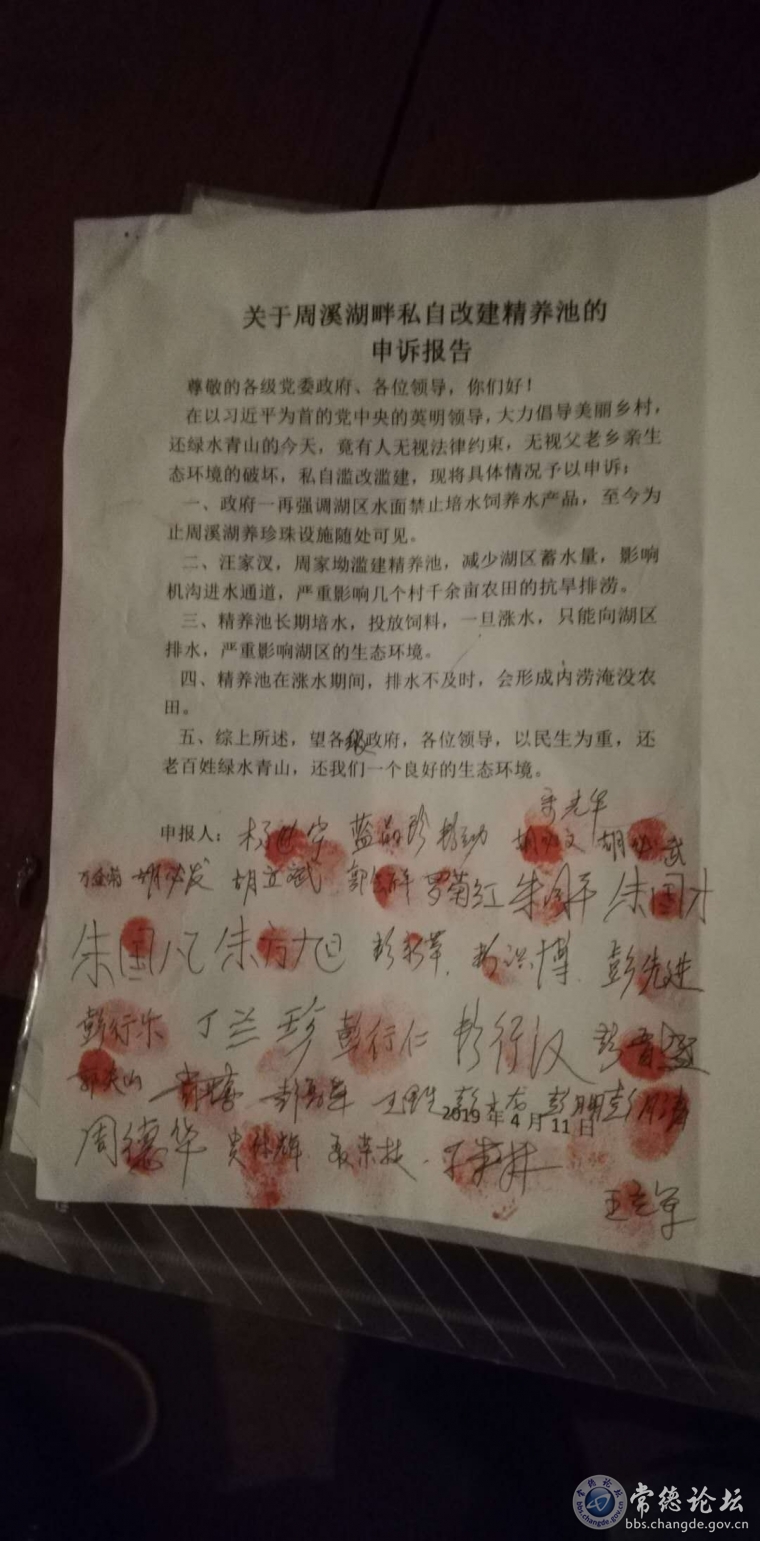 关于周溪湖畔私自改建精养池的
申诉报告
尊敬的各级党委政府、各位领导，你们好！
在以习近平为首的党中央的英明领导，大力倡导美丽乡村，
还绿水青山的今天，竟有人无视法律约束，无视父老乡亲生
态环境的破坏，私自滥改滥建，现将具体情况予以申诉：
一、政府一再强调湖区水面禁止培水饲养水产品，至今为
止周溪湖养珍珠设施随处可见。
二、汪家汊，周家坳滥建精养池，减少湖区蓄水量，影响
机沟进水通道，严重影响几个村千余亩农田的抗旱排涝。
三、精养池长期培水，投放饲料，一旦涨水，只能向湖区
排水，严重影响湖区的生态环境。
四、精养池在涨水期间，排水不及时，会形成内涝淹没农
田。
五、综上所述，望各级政府，各位领导，以民生为重，还
老百姓绿水青山，还我们一个良好的生态环境。
申报人：
胡立斌 罗菊红 朱国平 朱国才
朱国 朱方旭 彭先进
彭行乐 丁兰珍 彭行仁 彭行汉
2019年4月11日
周德华
常德论坛
bbs.changde.gov.cn